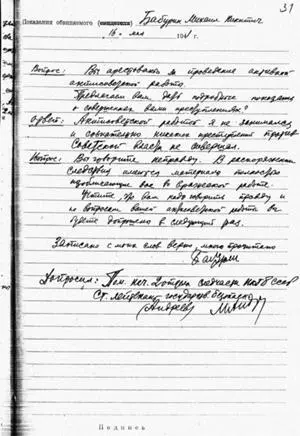 31
Показания обвиняемого (свидетеля) Бабурин Михаил Никитич
16. мая 1941 г.
Вопрос: Вы арестованы за проведение активной
антисоветской работы.
Предлагаем вам дать подробные показания
о совершенных вами преступлениях?
Ответ: Антисоветской работой я не занимался
и сознательно никаких преступлений против
Советской власти не совершал.
Вопрос: Вы говорите неправду. В распоряжении
следствия имеются материалы полностью
изобличающие вас во вражеской работе.
Учтите, что вам надо говорить правду и
по вопросам вашей антисоветской работы вы
будете допрошены в следующий раз.
Записано с моих слов верно, мною прочитано
Бабурин
Допросил: Пом. нач. 2 отдел
Ст. лейтенант государств. безопасности
(Андреев)
Подпись